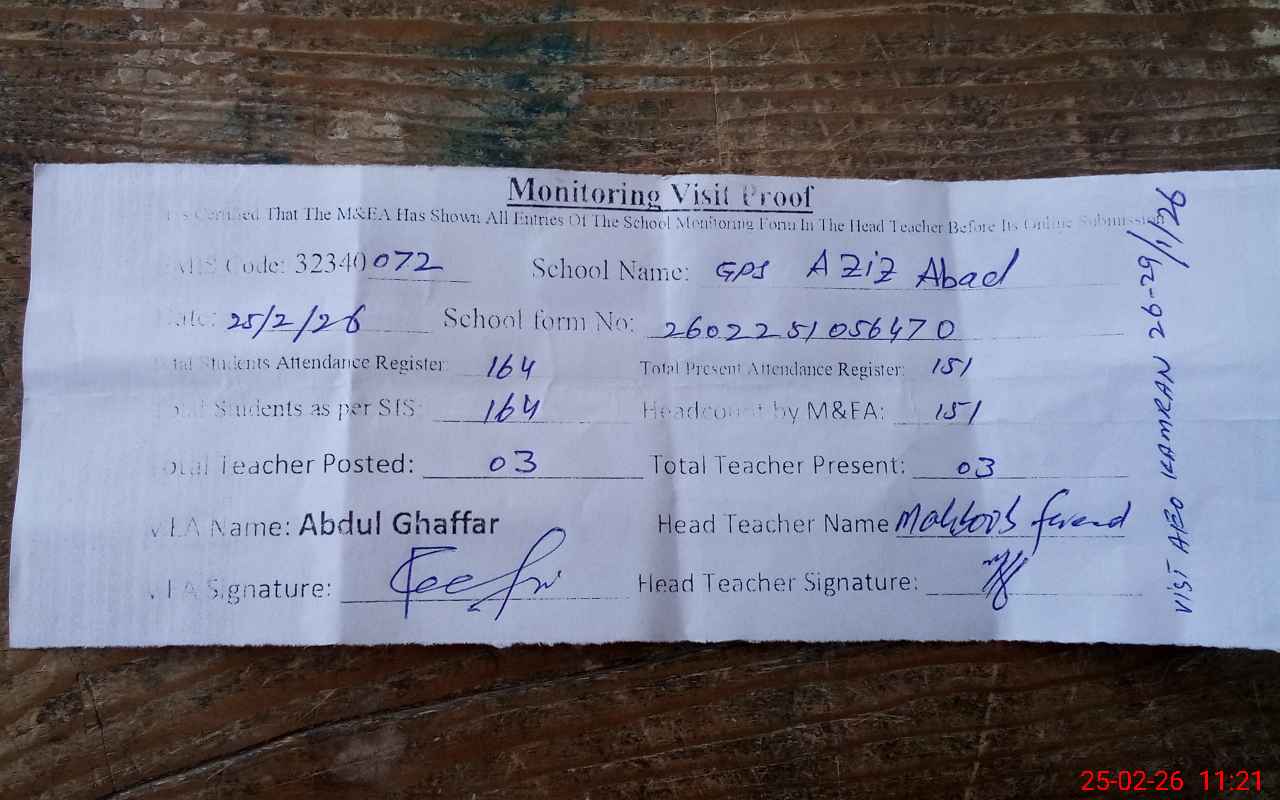 Monitoring Visit Proof
Certified That The M&EA Has Shown All Entries Of The School Monitoring Form In The Head Teacher Before Its Online Submission
EMIS Code: 32340072 School Name: GPS AZiZ Abad
Date: 25/2/26 School form No: 2602251056470
Total Students Attendance Register: 164 Total Present Attendance Register: 151
Total Students as per SIS: 164 Headcount by M&EA: 151
Total Teacher Posted: 03 Total Teacher Present: 03
MEA Name: Abdul Ghaffar Head Teacher Name Mahboob
MEA Signature: Head Teacher Signature:
VIST AEO KAMRAN 26-29/1/26
25-02-26 11:21